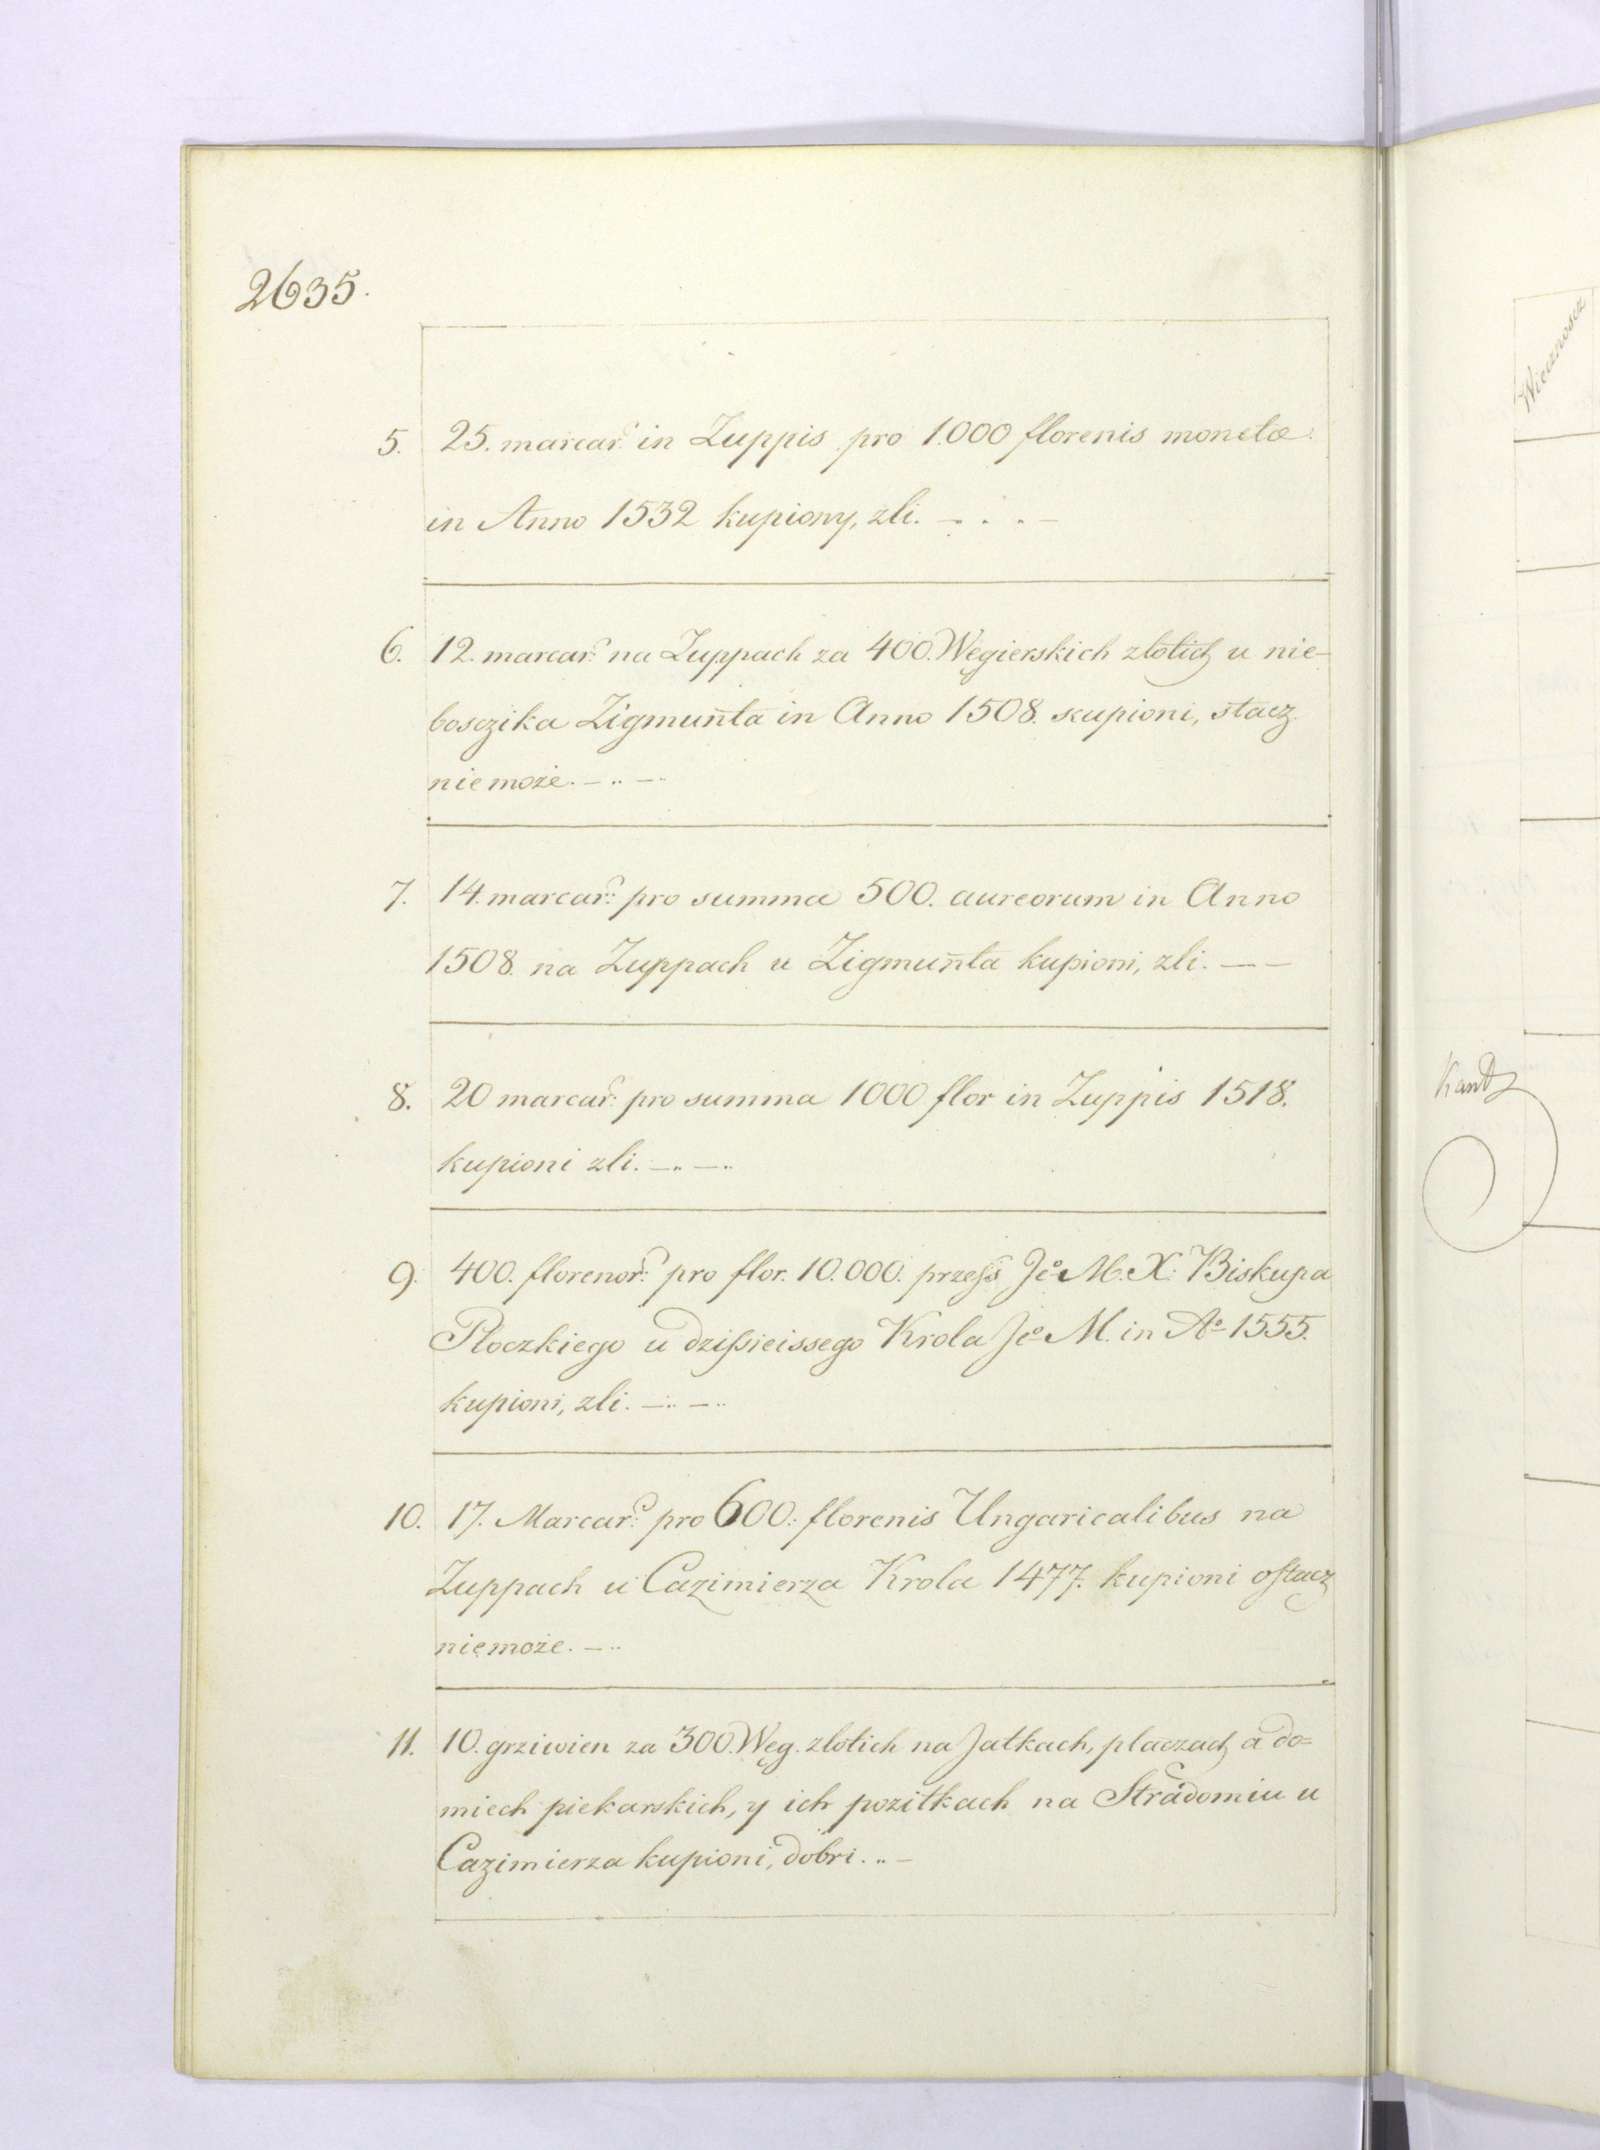 2635.
5. 25. marcar: in Zuppis pro 1.000 florenis monetæ
in Anno 1532 kupiony, zli. — . . —
6. 12. marcar: na Zuppach za 400. Węgierskich zlotich u nie-
bosczika Zigmunta in Anno 1508. skupioni, stacz
niemoże. — .. —
7. 14. marcar: pro summa 500. aureorum in Anno
1508. na Zuppach u Zigmunta kupioni, zli. — —
8. 20 marcar: pro summa 1000 flor in Zuppis 1518.
kupioni zli. — .. — ..
9. 400. florenor: pro flor. 10.000. przess Jeº M. X. Biskupa
Płoczkiego u dzisieissego Krola Jeº M. in Aº 1555.
kupioni, zli. — .. — ..
10. 17. Marcar: pro 600. florenis Ungaricalibus na
Zuppach u Cazimierza Krola 1477. kupioni ostacz
niemoże. — ..
11. 10. grziwien za 300. Węg. zlotich na Jatkach, placzach a do=
miech piekarskich, y ich pozitkach na Stradomiu u
Cazimierza kupioni, dobri. .. —
Wiecznoscz